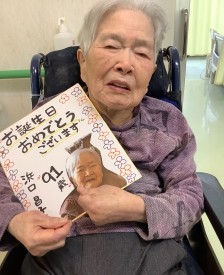 お誕生日
おめでとう
ございます
91歳
浜口 昌